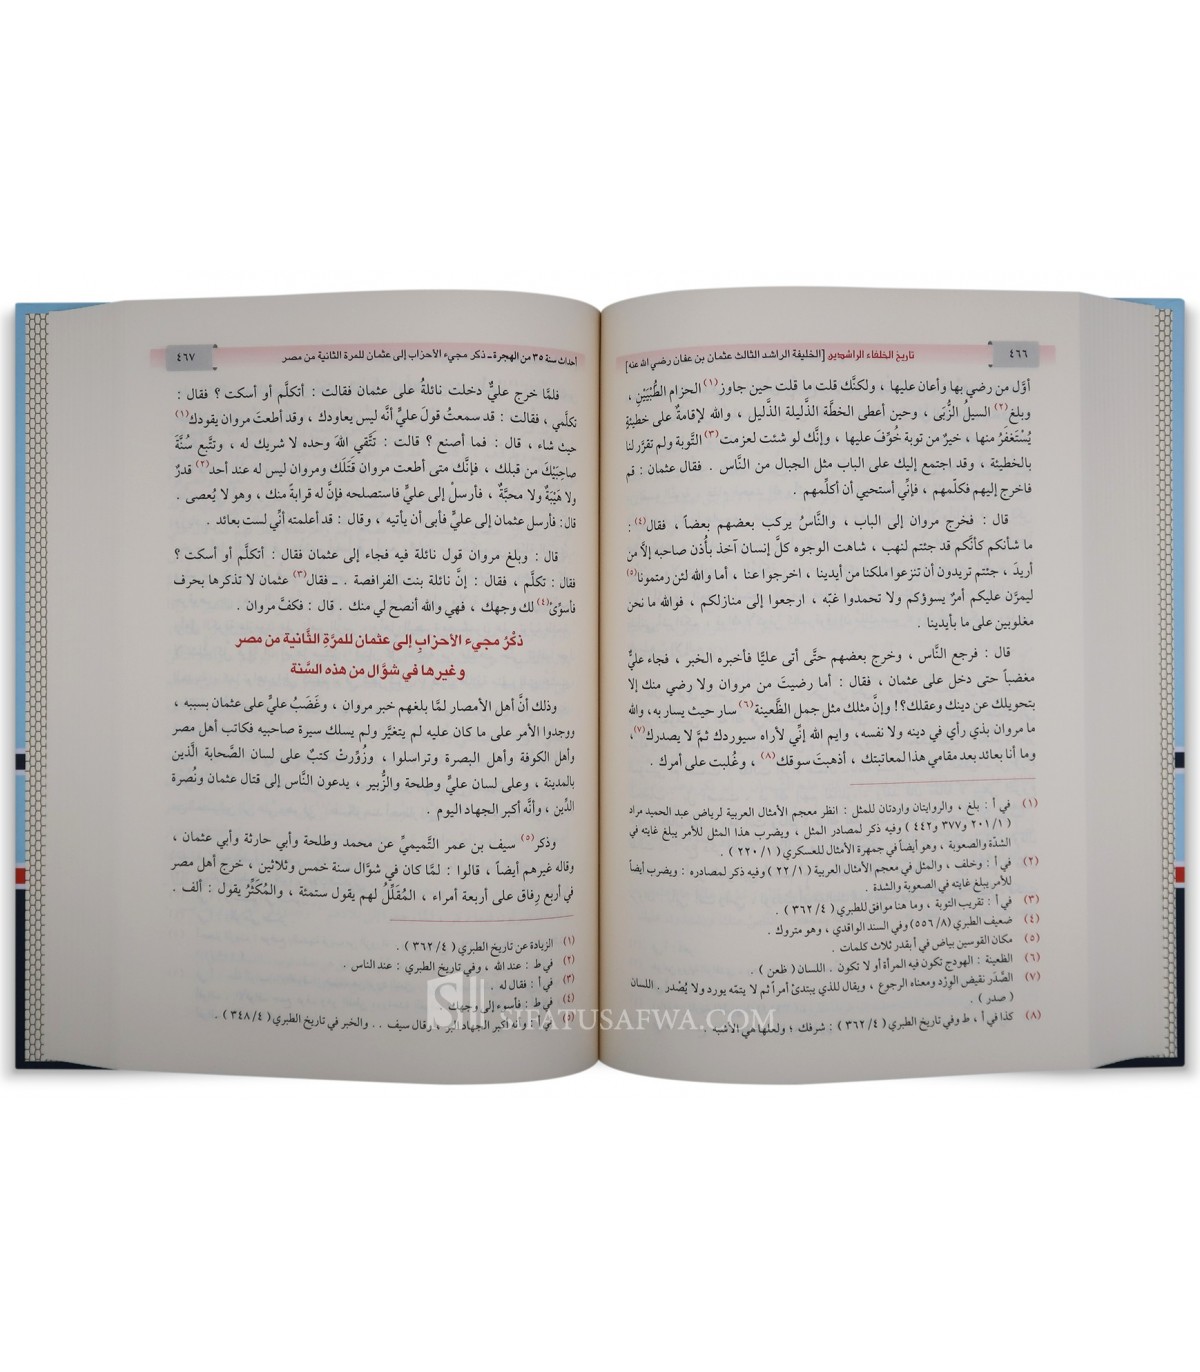 ٤٦٦
تاريخ الخلفاء الراشدين [الخليفة الراشد الثالث عثمان بن عفان رضي الله عنه]
أوَّل من رضي بها وأعان عليها ، ولكنَّك قلت ما قلت حين جاوز(١) الحزام الطُّبْيَيْنِ ،
وبلغ(٢) السيلُ الزُّبَى ، وحين أعطى الخطَّة الذَّليلة الذَّليل ، والله لإقامةٌ على خطيئةٍ
يُسْتَغفَرُ منها ، خيرٌ من توبة خُوِّفَ عليها ، وإنَّك لو شئت لعزمت(٣) التَّوبة ولم تقرَّر لنا
بالخطيئة ، وقد اجتمع إليك على الباب مثل الجبال من النَّاس . فقال عثمان : قم
فاخرج إليهم فكلّمهم ، فإنِّي أستحيي أن أكلِّمهم .
قال : فخرج مروان إلى الباب ، والنَّاسُ يركب بعضهم بعضاً ، فقال(٤) :
ما شأنكم كأنَّكم قد جئتم لنهب ، شاهت الوجوه كلَّ إنسان آخذ بأُذن صاحبه إلاَّ من
أريدَ ، جئتم تريدون أن تنزعوا ملكنا من أيدينا ، اخرجوا عنا ، أما والله لئن رمتمونا(٥)
ليمرَّن عليكم أمرٌ يسوؤكم ولا تحمدوا غبّه ، ارجعوا إلى منازلكم ، فوالله ما نحن
مغلوبين على ما بأيدينا .
قال : فرجع النَّاس ، وخرج بعضهم حتَّى أتى عليًّا فأخبره الخبر ، فجاء عليٌّ
مغضباً حتى دخل على عثمان ، فقال : أما رضيتَ من مروان ولا رضي منك إلا
بتحويلك عن دينك وعقلك؟! وإنَّ مثلك مثل جمل الظَّعينة(٦) سار حيث يسار به، والله
ما مروان بذي رأي في دينه ولا نفسه، وايم الله إنِّي لأراه سيوردك ثمَّ لا يصدرك(٧)،
وما أنا بعائد بعد مقامي هذا لمعاتبتك ، أذهبتَ سوقك(٨) ، وغُلبت على أمرك .
(١) في أ : بلغ ، والروايتان واردتان للمثل : انظر معجم الأمثال العربية لرياض عبد الحميد مراد
( ٢٠١/١ و٣٧٧ و٤٤٢ ) وفيه ذكر لمصادر المثل ، ويضرب هذا المثل للأمر يبلغ غايته في
الشدّة والصعوبة ، وهو أيضاً في جمهرة الأمثال للعسكري ( ٢٢٠/١ ) .
(٢) في أ : وخلف ، والمثل في معجم الأمثال العربية ( ٢٢/١ ) وفيه ذكر لمصادره : ويضرب أيضاً
للأمر يبلغ غايته في الصعوبة والشدة .
(٣) في أ : تقريب التوبة ، وما هنا موافق للطبري ( ٣٦٢/٤ ) .
(٤) ضعيف الطبري (٥٥٦/٨) وفي السند الواقدي ، وهو متروك .
(٥) مكان القوسين بياض في أ بقدر ثلاث كلمات .
(٦) الظعينة : الهودج تكون فيه المرأة أو لا تكون . اللسان ( ظعن ) .
(٧) الصَّدَر نقيض الوِرْد ومعناه الرجوع ، ويقال للذي يبتدئ أمراً ثم لا يتمّه يورد ولا يُصْدر . اللسان
( صدر ) .
(٨) كذا في أ ، ط وفي تاريخ الطبري ( ٣٦٢/٤ ) : شرفك ؛ ولعلها هي الأشبه .
أحداث سنة ٣٥ من الهجرة ـ ذكر مجيء الأحزاب إلى عثمان للمرة الثانية من مصر
٤٦٧
فلمَّا خرج عليٌّ دخلت نائلةُ على عثمان فقالت : أتكلَّم أو أسكت ؟ فقال :
تكلَّمي ، فقالت : قد سمعتُ قولَ عليٍّ أنَّه ليس يعاودك ، وقد أطعتَ مروان يقودك(١)
حيث شاء ، قال : فما أصنع ؟ قالت : تتَّقي اللهَ وحده لا شريك له ، وتتَّبع سُنَّةَ
صاحِبَيْكَ من قبلك ، فإنَّك متى أطعت مروان قَتَلَك ومروان ليس له عند أحد(٢) قدرٌ
ولا هَيْبَةٌ ولا محبَّةٌ ، فأرسلْ إلى عليٍّ فاستصلحه فإنَّ له قرابةً منك ، وهو لا يُعصى .
قال : فأرسل عثمان إلى عليٍّ فأبى أن يأتيه ، وقال : قد أعلمته أنِّي لست بعائد .
قال : وبلغ مروان قول نائلة فيه فجاء إلى عثمان فقال : أتكلَّم أو أسكت ؟
فقال : تكلَّم ، فقال : إنَّ نائلة بنت الفرافصة . ـ فقال(٣) عثمان لا تذكرها بحرف
فأسوِّئ(٤) لك وجهك ، فهي والله أنصح لي منك . قال : فكفَّ مروان .
ذكْرُ مجيء الأحزابِ إلى عثمان للمرَّةِ الثَّانية من مصر
وغيرها في شوَّال من هذه السَّنة
وذلك أنَّ أهل الأمصار لمَّا بلغهم خبر مروان ، وغَضَبُ عليٍّ على عثمان بسببه ،
ووجدوا الأمر على ما كان عليه لم يتغيَّر ولم يسلك سيرة صاحبيه فكاتب أهل مصر
وأهل الكوفة وأهل البصرة وتراسلوا ، وزُوِّرتْ كتبٌ على لسان الصَّحابة الَّذين
بالمدينة ، وعلى لسان عليٍّ وطلحة والزُّبير ، يدعون النَّاس إلى قتال عثمان ونُصرة
الدِّين ، وأنَّه أكبر الجهاد اليوم .
وذكر(٥) سيف بن عمر التَّميميِّ عن محمد وطلحة وأبي حارثة وأبي عثمان ،
وقاله غيرهم أيضاً ، قالوا : لمَّا كان في شوَّال سنة خمس وثلاثين ، خرج أهل مصر
في أربع رِفاق على أربعة أمراء ، المُقَلِّلُ لهم يقول ستمئة ، والمُكَثِّرُ يقول : ألف .
(١) الزيادة عن تاريخ الطبري ( ٣٦٢/٤ ) .
(٢) في ط : عند الله ، وفي تاريخ الطبري : عند الناس .
(٣) في أ : فقال له .
(٤) في ط : فأسوء إلى وجهك .
(٥) في أ : وأنه أكبر الجهاد أكبر ، وقال سيف .. والخبر في تاريخ الطبري ( ٣٤٨/٤ ) .
SIFATUSAFWA.COM